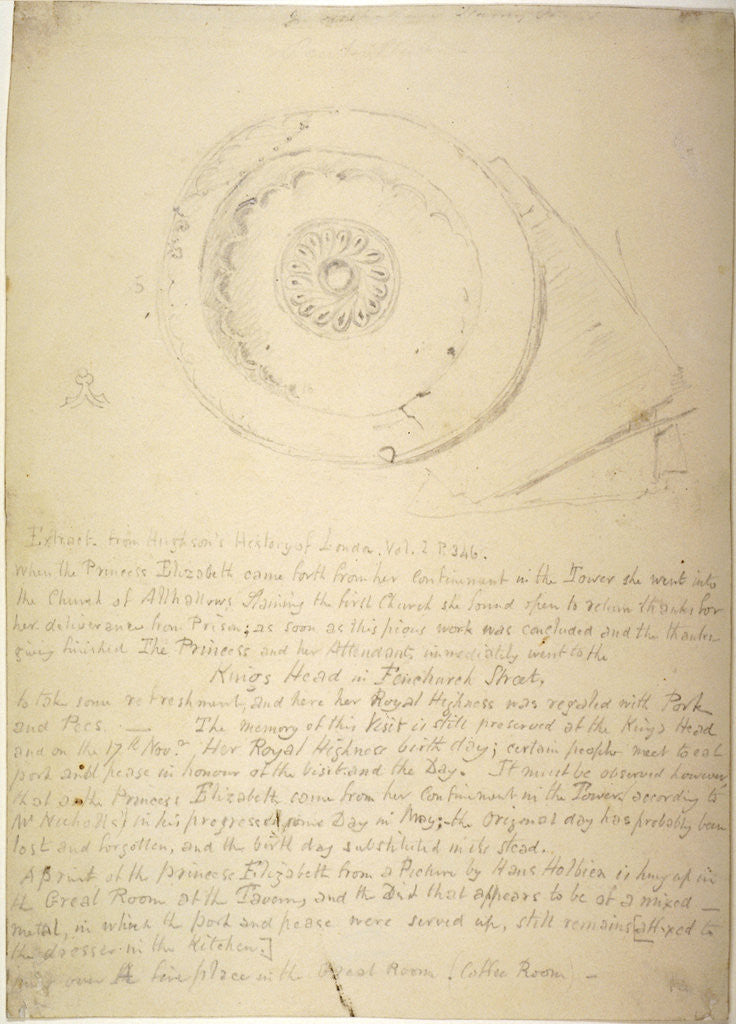 Extract. from Hughson's History of London. Vol. 2 P. 346.
when the Princess Elizabeth came forth from her Confinement in the Tower she went into
the Church of Allhallows Staining the first Church she found open to return thanks for
her deliverance from Prison; as soon as this pious work was concluded and the thanks-
giving finished The Princess and her Attendants, immediately went to the
Kings Head in Fenchurch Street,
to take some refreshment, and here her Royal Highness was regaled with Pork
and Pees. — The memory of this Visit is still preserved at the Kings Head
and on the 17th Novr. Her Royal Highness birth day; certain people meet to eat
pork and pease in honour of the visit and the Day. It must be observed however,
that as the Princess Elizabeth came from her Confinement in the Tower, according to
Mr Nicholls, in his progresses, some Day in May; the Original day has probably been
lost and forgotten, and the birth day substituted in its stead.
A print of the princess Elizabeth from a Picture by Hans Holbien is hung up in
the Great Room at the Tavern, and the Dish that appears to be of a mixed —
metal, in which the pork and pease were served up, still remains [affixed to
the dresser in the Kitchen.]
over the fire place in the Great Room (Coffee Room) —